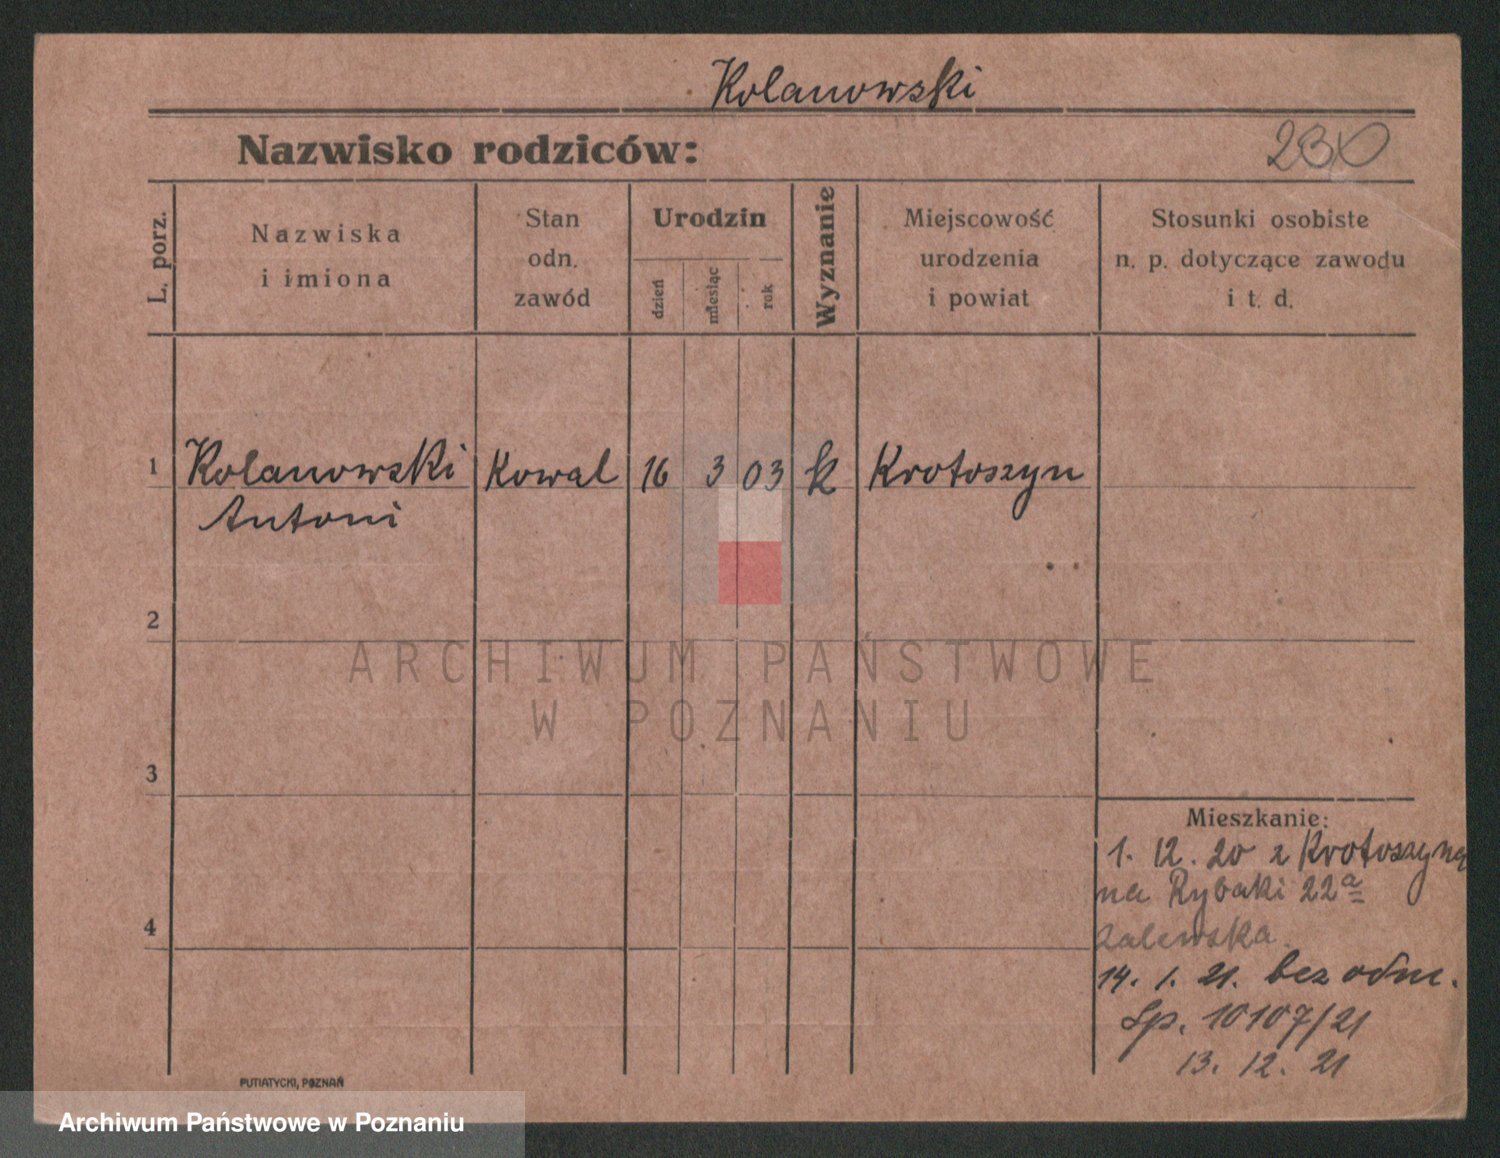 Kolanowski
Nazwisko rodziców:
230
L. porz.
Nazwiska
i imiona
Stan
odn.
zawód
Urodzin
dzień
miesiąc
rok
Wyznanie
Miejscowość
urodzenia
i powiat
Stosunki osobiste
n. p. dotyczące zawodu
i t. d.
1 Kolanowski Kowal 16 3 03 k Krotoszyn
Antoni
2
ARCHIWUM PAŃSTWOWE
W POZNANIU
3
Mieszkanie:
1. 12. 20 z Krotoszyna
na Rybaki 22a
Zalewska
4
14. 1. 21. bez odm.
Sp. 10107/21
13. 12. 21
PUTIATYCKI, POZNAŃ
Archiwum Państwowe w Poznaniu